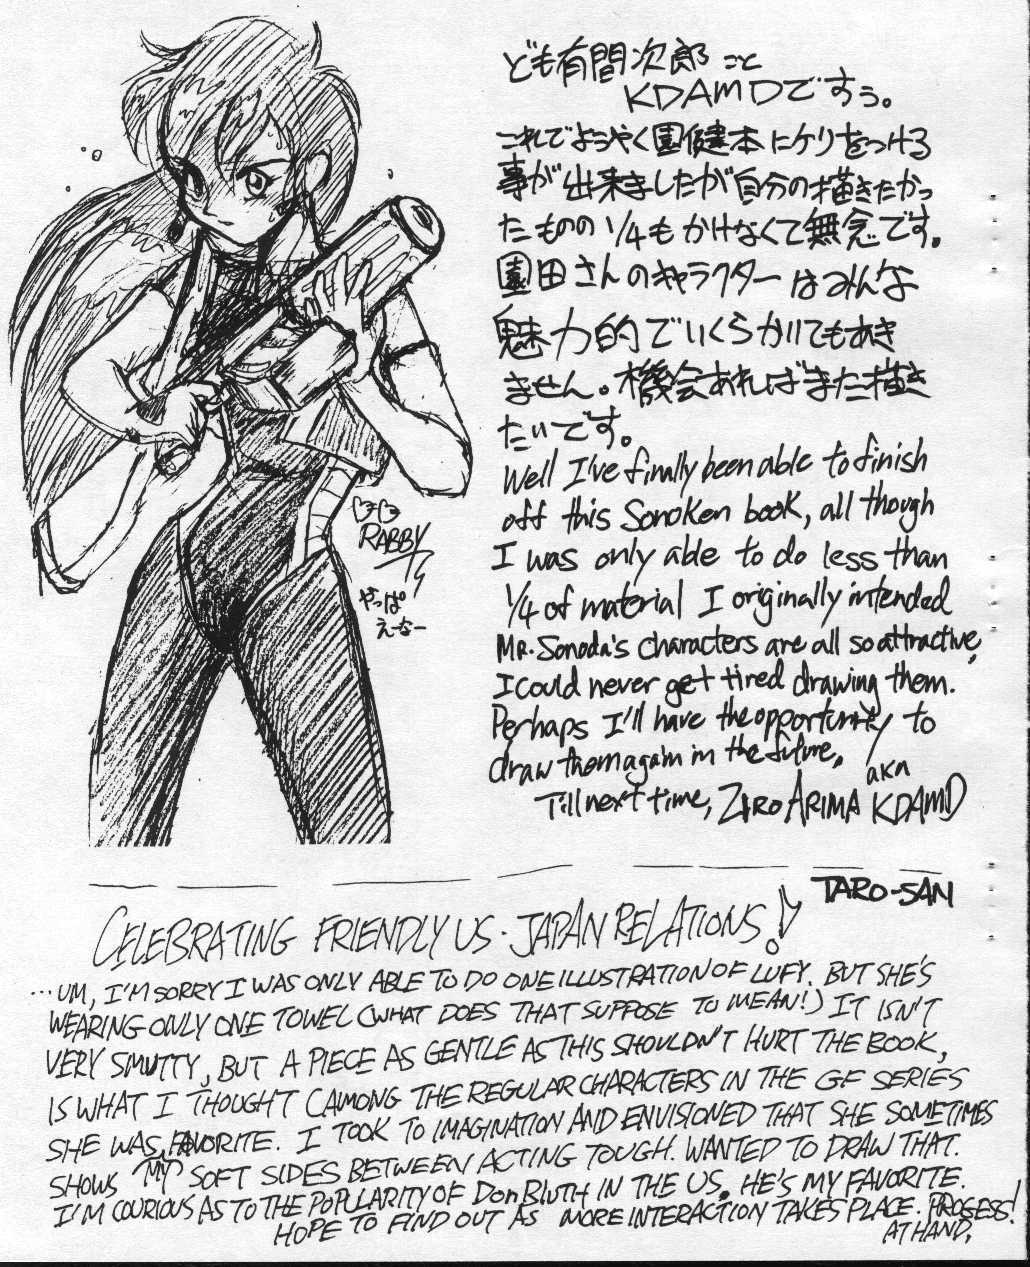 ども有間次郎こと
KDAMDですぅ。
これでようやく園健本にケリをつける
事が出来ましたが自分の描きたかっ
たものの1/4もかけなくて無念です。
園田さんのキャラクターはみんな
魅力的でいくらかいてもあき
ません。機会あればまた描き
たいです。
Well I've finally been able to finish
off this Sonoken book, all though
I was only able to do less than
1/4 of material I originally intended
MR. Sonoda's characters are all so attractive,
I could never get tired drawing them.
Perhaps I'll have the opportunity to
draw them again in the future.
Till next time, ZIRO ARIMA aka KDAMD
RABBY
やっぱ
えーなー
TARO-SAN
CELEBRATING FRIENDLY US-JAPAN RELATIONS!
...UM, I'M SORRY I WAS ONLY ABLE TO DO ONE ILLUSTRATION OF LUFY. BUT SHE'S
WEARING ONLY ONE TOWEL (WHAT DOES THAT SUPPOSE TO MEAN!) IT ISN'T
VERY SMUTTY, BUT A PIECE AS GENTLE AS THIS SHOULDN'T HURT THE BOOK,
IS WHAT I THOUGHT (AMONG THE REGULAR CHARACTERS IN THE GF SERIES
SHE WAS MY FAVORITE. I TOOK TO IMAGINATION AND ENVISIONED THAT SHE SOMETIMES
SHOWS SOFT SIDES BETWEEN ACTING TOUGH. WANTED TO DRAW THAT.
I'M COURIOUS AS TO THE POPULARITY OF Don Bluth IN THE US. HE'S MY FAVORITE.
HOPE TO FIND OUT AS MORE INTERACTION TAKES PLACE. PROGESS!
AT HAND.